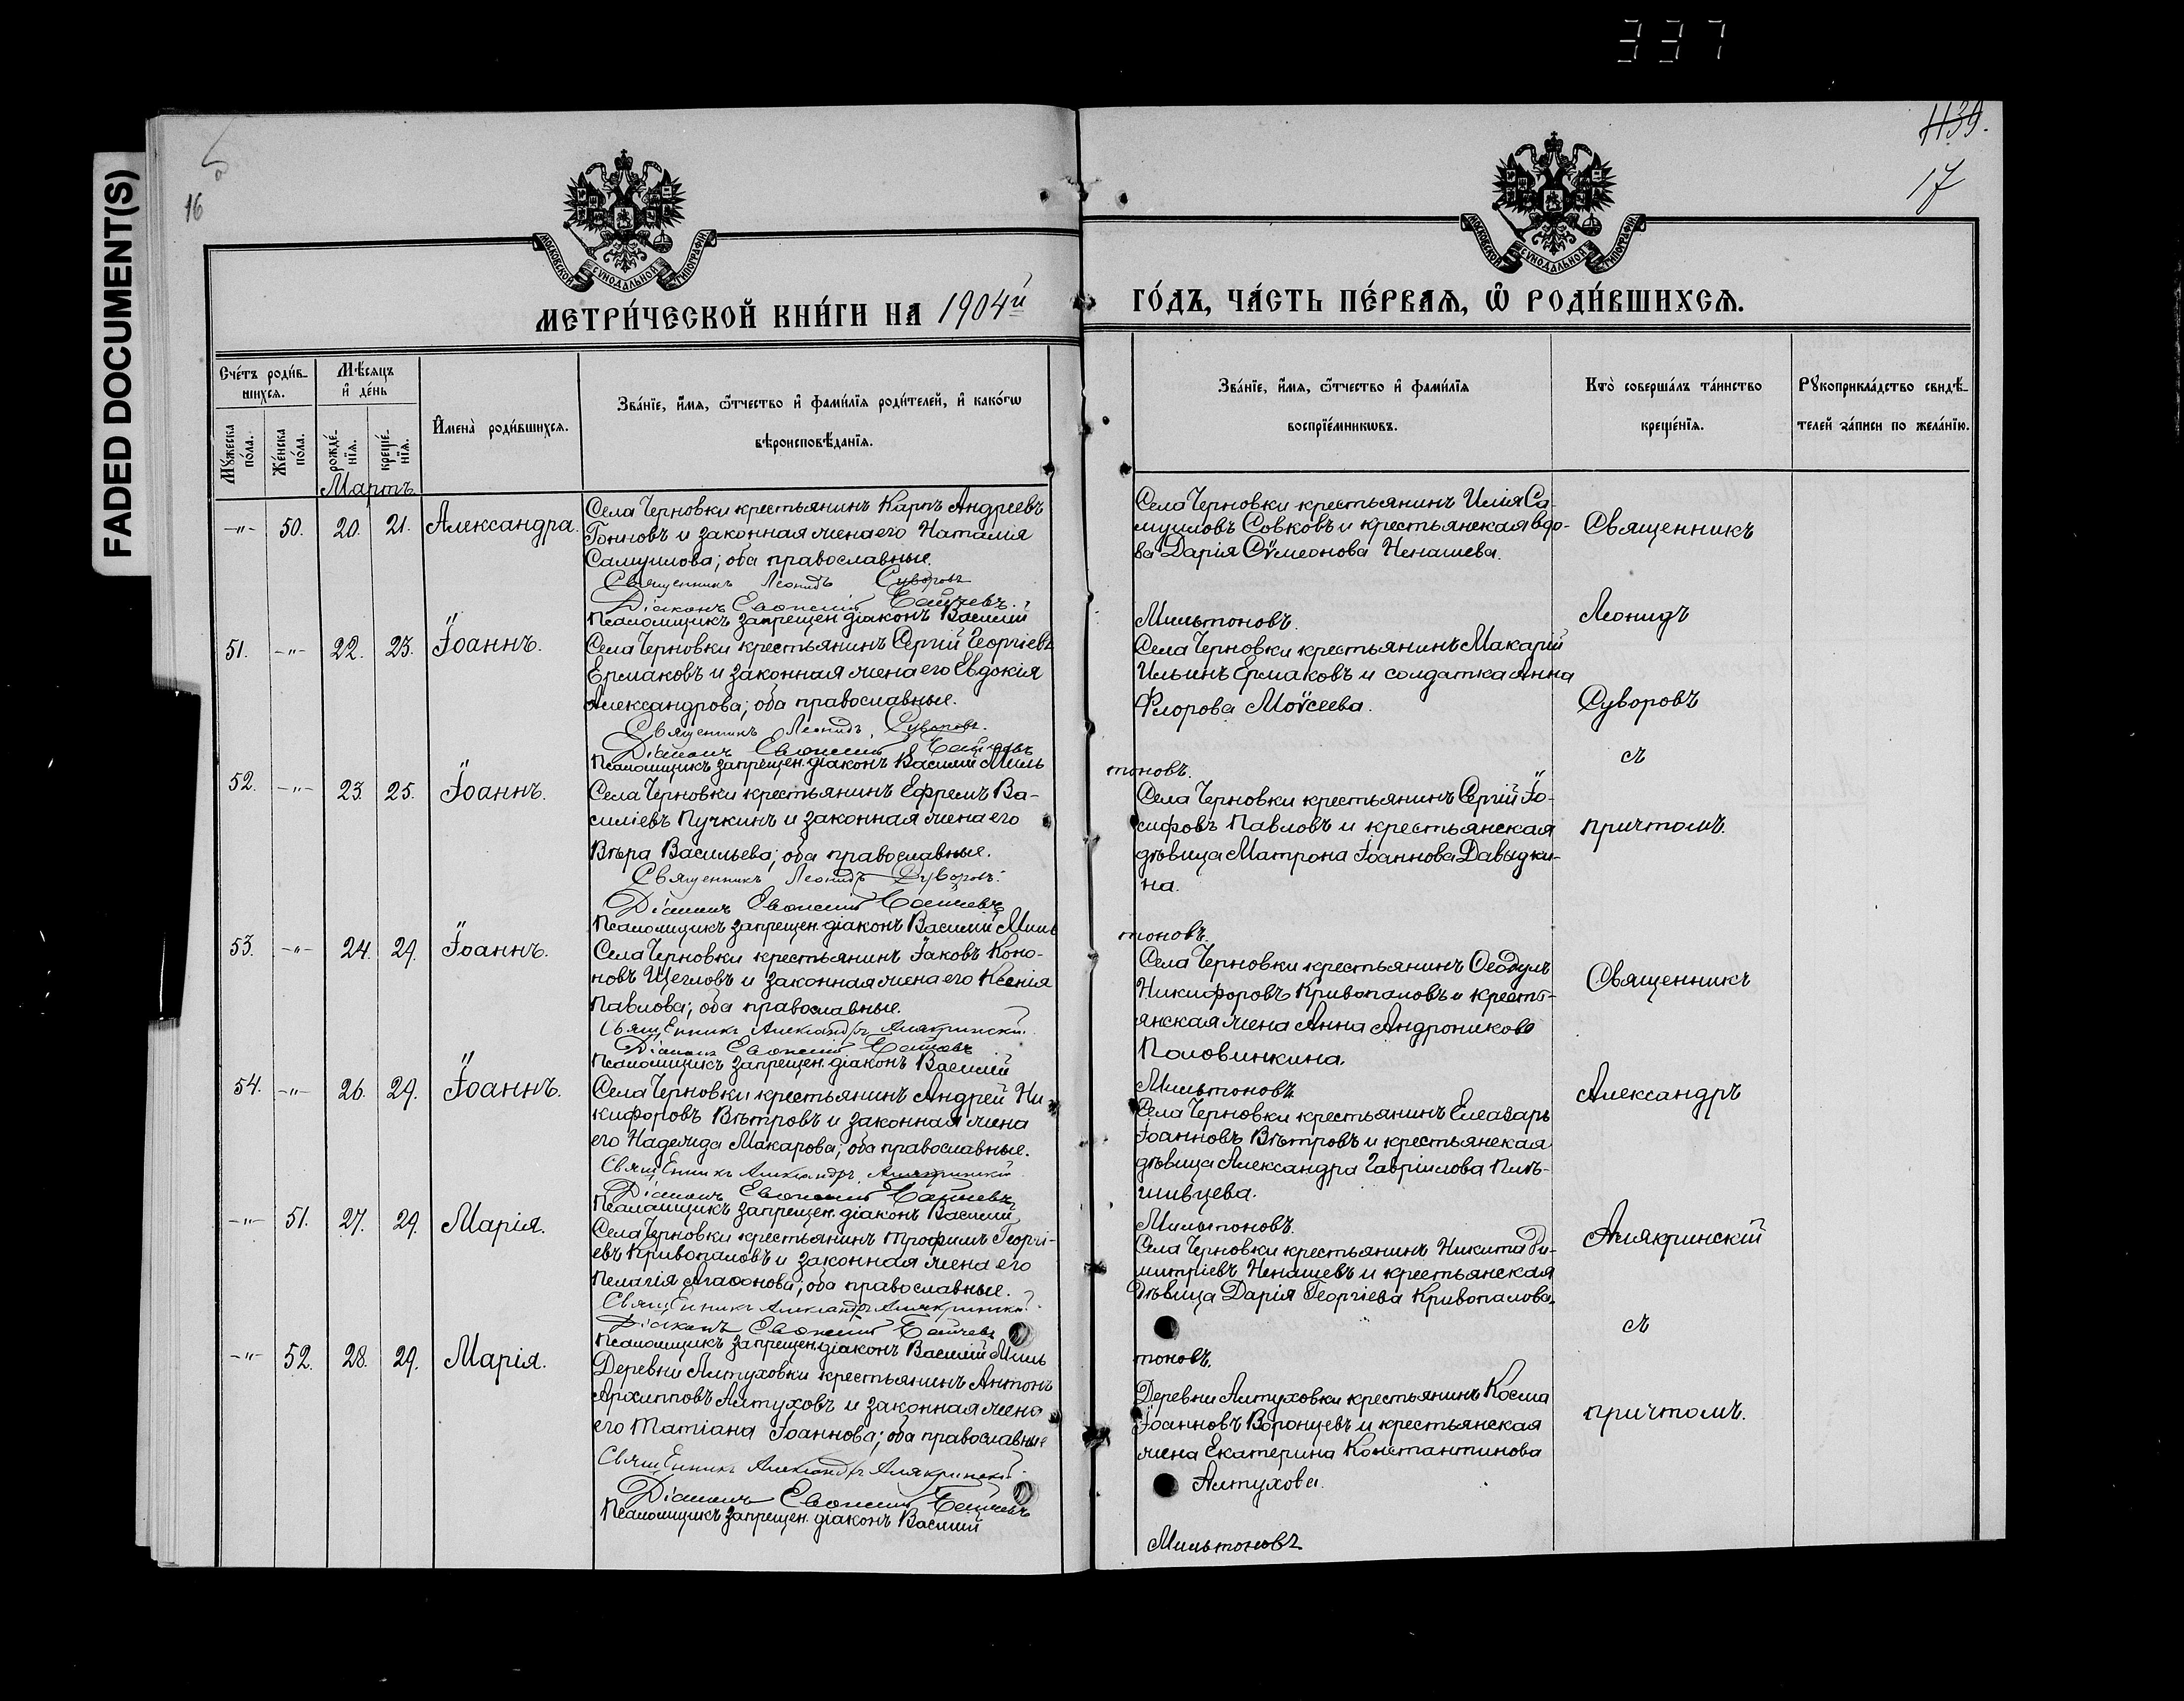 337
FADED DOCUMENT(S)
16
1139.
17
МОСКОВСКОЙ СУНОДАЛЬНОЙ ТИПОГРАФІИ
МОСКОВСКОЙ СУНОДАЛЬНОЙ ТИПОГРАФІИ
МЕТРИ́ЧЕСКОЙ КНИ́ГИ НА 1904й
ГО́ДЪ, ЧА́СТЬ ПЕ́РВАЯ, Ѡ҆ РОДИ́ВШИХСЯ.
Сче́тъ роди́в-
шихся.
Мꙋ́жеска по́ла.
Же́нска по́ла.
Мѣ́сяцъ
и҆ де́нь
рожде́-
нїя.
креще́-
нїя.
И҆мена̀ роди́вшихся.
Зва́нїе, и҆́мя, ѻ҆́тчество и҆ фами́лїя роди́телей, и҆ како́гѡ
вѣроисповѣ́данїя.
Зва́нїе, и҆́мя, ѻ҆́тчество и҆ фами́лїя
воспрїе́мникѡвъ.
Кто̀ соверша́лъ та́инство
креще́нїя.
Рꙋкоприкла́дство свидѣ́-
телей за́писи по жела́нїю.
Мартъ
-"- 50. 20. 21. Александра.
Села Черновки крестьянинъ Карпъ Андреевъ
Гоновъ и законная жена его Наталія
Самуилова; оба православные.
Священникъ Леонидъ Суворовъ
Діаконъ
Псаломщикъ запрещен. діаконъ Василий
Села Черновки крестьянинъ Илія Са-
муиловъ Совковъ и крестьянская вдо-
ва Дарія Сѵмеонова Ненашева.
Мильтоновъ.
Священникъ
Леонидъ
Суворовъ
съ
причтомъ.
51. -"- 22. 23. Іоаннъ.
Села Черновки крестьянинъ Сергій Георгіевъ
Ермаковъ и законная жена его Евдокія
Александрова; оба православные.
Священникъ Леонидъ Суворовъ.
Діаконъ
Псаломщикъ запрещен. діаконъ Василий Миль
Села Черновки крестьянинъ Макарій
Ильинъ Ермаковъ и солдатка Анна
Флорова Моѵсеева.
тоновъ.
52. -"- 23. 25. Іоаннъ.
Села Черновки крестьянинъ Ефремъ Ва-
силіевъ Пучкинъ и законная жена его
Вѣра Васильева; оба православные.
Священникъ Леонидъ Суворовъ.
Діаконъ
Псаломщикъ запрещен. діаконъ Василий Миль
Села Черновки крестьянинъ Сергій Іо-
сифовъ Павловъ и крестьянская
дѣвица Матрона Іоаннова Давыдки-
на.
тоновъ.
53. -"- 24. 29. Іоаннъ.
Села Черновки крестьянинъ Іаковъ Коно-
новъ Щегловъ и законная жена его Ксенія
Павлова; оба православные.
Священникъ Александръ Алякринскій.
Діаконъ
Псаломщикъ запрещен. діаконъ Василий
Села Черновки крестьянинъ Ѳеодулъ
Никифоровъ Кривопаловъ и кресть-
янская жена Анна Андроникова
Половинкина.
Мильтоновъ.
Священникъ
Александръ
Алякринскій
съ
причтомъ.
54. -"- 26. 29. Іоаннъ.
Села Черновки крестьянинъ Андрей Ни-
кифоровъ Вѣтровъ и законная жена
его Надежда Макарова; оба православные.
Священникъ Александръ Алякринскій
Діаконъ
Псаломщикъ запрещен. діаконъ Василий
Села Черновки крестьянинъ Елеазаръ
Іоанновъ Вѣтровъ и крестьянская
дѣвица Александра Гавріилова Пле-
шивцева.
Мильтоновъ.
-"- 51. 27. 29. Марія.
Села Черновки крестьянинъ Трофимъ Георгі-
евъ Кривопаловъ и законная жена его
Пелагія Агаѳонова; оба православные.
Священникъ Александръ Алякринскій.
Діаконъ
Псаломщикъ запрещен. діаконъ Василий Миль
Села Черновки крестьянинъ Никита Ди-
митріевъ Ненашевъ и крестьянская
дѣвица Дарія Георгіева Кривопалова.
тоновъ.
-"- 52. 28. 29. Марія.
Деревни Алтуховки крестьянинъ Антонъ
Архипповъ Алтуховъ и законная жена
его Татіана Іоаннова; оба православные
Священникъ Александръ Алякринскій.
Діаконъ
Псаломщикъ запрещен. діаконъ Василий
Деревни Алтуховки крестьянинъ Косма
Іоанновъ Воронцевъ и крестьянская
жена Екатерина Константинова
Алтухова.
Мильтоновъ